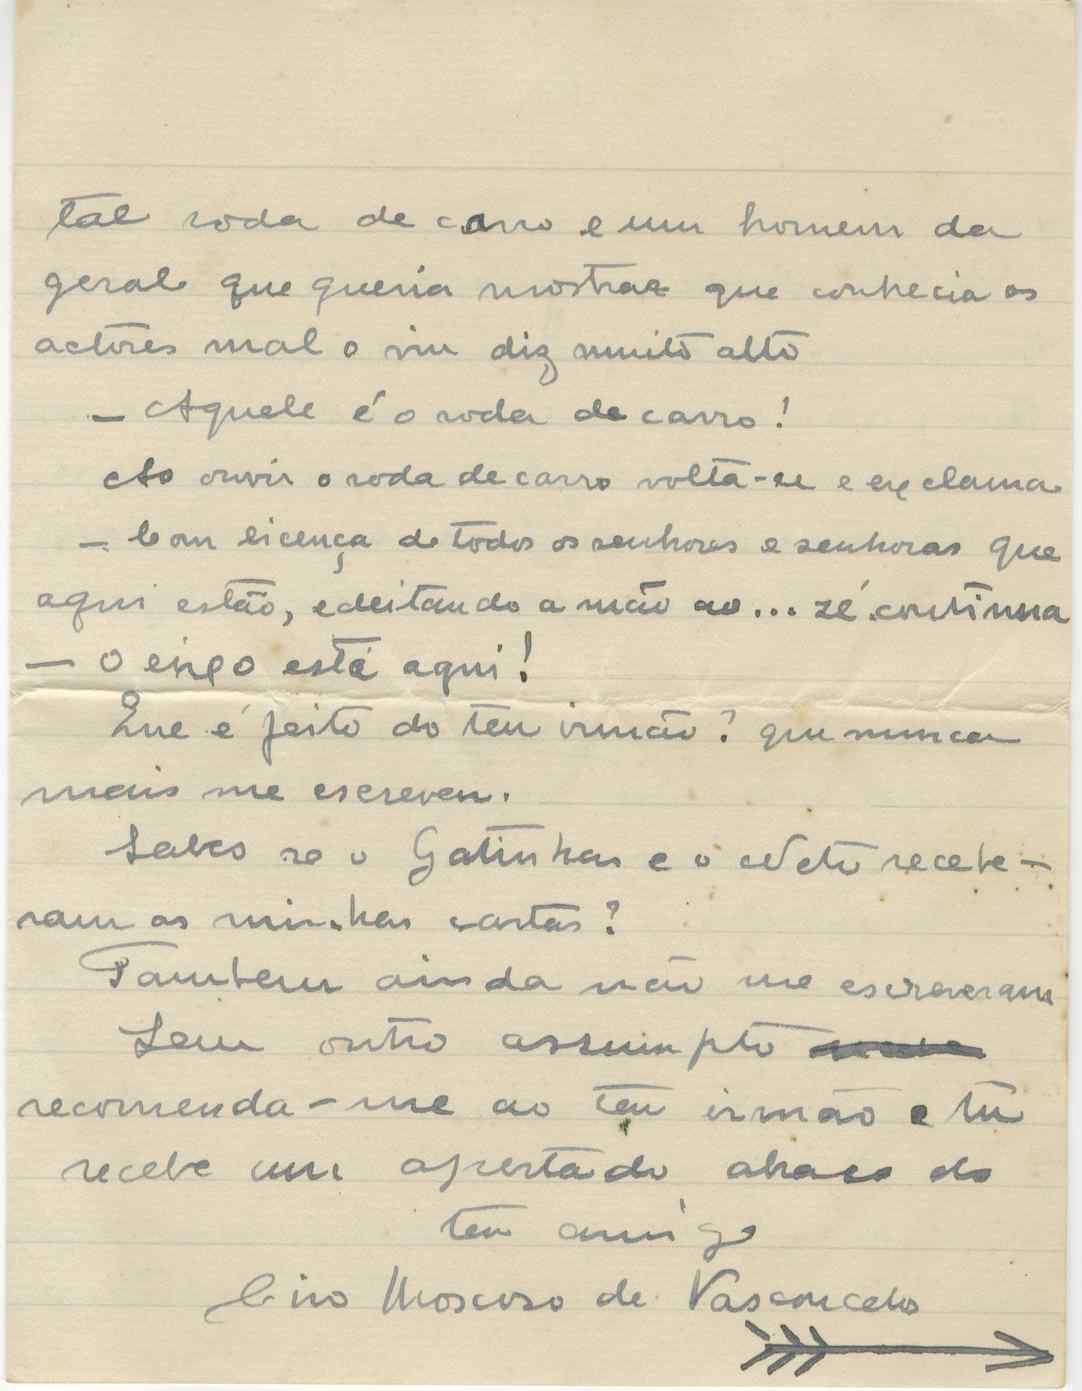 tal roda de carro e um homem da
geral que queria mostrar que conhecia os
actores mal o viu diz muito alto
— Aquele é o roda de carro!
Ao ouvir o roda de carro volta-se e exclama
— Com licença de todos os senhores e senhoras que
aqui estão, e deitando a mão ao... zé continua
— O eixo está aqui!
Que é feito do teu irmão? que nunca
mais me escreveu.
Sabes se o Gatinhas e o Neto recebe-
ram as minhas cartas?
Tambem ainda não me escreveram
Sem outro assumpto
recomenda-me ao teu irmão e tu
recebe um apertado abraço do
teu amigo
Ciro Moscoso de Vasconcelos